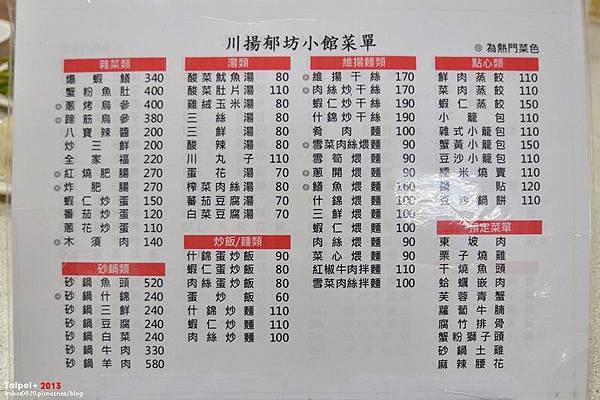 川揚郁坊小館菜單
◎為熱門菜色
雜菜類
爆蝦鱔 340
蟹粉魚肚 400
◎蔥烤烏參 400
◎蹄筋烏參 380
八寶辣醬 200
炒三鮮 200
全家福 220
◎紅燒肥腸 270
◎炸肥腸 270
蝦仁炒蛋 150
番茄炒蛋 120
蔥花炒蛋 110
◎木須肉 140
砂鍋類
砂鍋魚頭 520
◎砂鍋什錦 240
砂鍋三鮮 240
砂鍋豆腐 240
砂鍋白菜 240
砂鍋牛肉 330
砂鍋羊肉 580
湯類
酸菜魷魚湯 80
酸菜肚片湯 110
雞絨玉米湯 80
三絲湯 80
三鮮湯 80
酸辣湯 80
川丸子 110
蛋花湯 70
榨菜肉絲湯 80
蕃茄豆腐湯 70
白菜豆腐湯 70
炒飯/麵類
什錦蛋炒飯 90
蝦仁蛋炒飯 80
肉絲蛋炒飯 80
蛋炒飯 60
什錦炒麵 110
蝦仁炒麵 110
肉絲炒麵 100
維揚麵類
◎維揚干絲 170
◎肉絲炒干絲 170
蝦仁炒干絲 170
什錦炒干絲 170
肴肉麵 100
◎雪菜肉絲煨麵 90
雪筍煨麵 90
◎蔥開煨麵 90
◎鱔魚煨麵 160
什錦煨麵 100
三鮮煨麵 100
蝦仁煨麵 100
肉絲煨麵 90
菜心煨麵 90
紅椒牛肉拌麵 110
雪菜肉絲拌麵 100
點心類
鮮肉蒸餃 110
菜肉蒸餃 110
蝦仁蒸餃 150
小籠包 110
雜式小籠包 110
蟹黃小籠包 150
豆沙小籠包 110
糯米燒賣 110
鍋貼 120
豆沙鍋餅 110
預定菜單
東坡肉
栗子燒雞
干燒魚頭
蛤蠣嵌肉
芙蓉青蟹
蘿蔔牛腩
腐竹排骨
蟹粉獅子頭
砂鍋土雞
麻辣腰花
Taipei+ 2013
irobot0820.pixnet.net/blog